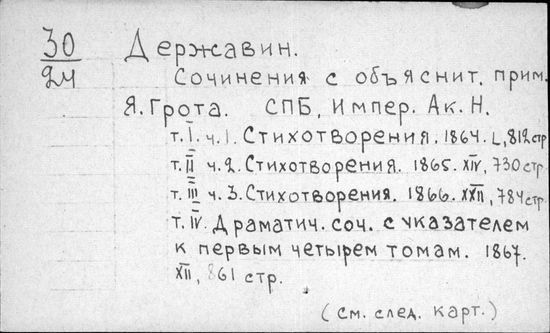 30
24
Державин.
Сочинения с объяснит. прим.
Я. Грота. СПБ, Импер. Ак. Н.
т. I. ч. 1. Стихотворения. 1864. L, 812 стр
т. II ч. 2. Стихотворения. 1865. XIV, 730 стр.
т. III ч. 3. Стихотворения. 1866. XXII, 784 стр.
т. IV. Драматич. соч. с указателем
к первым четырем томам. 1867.
XII, 861 стр.
(см. след. карт.)